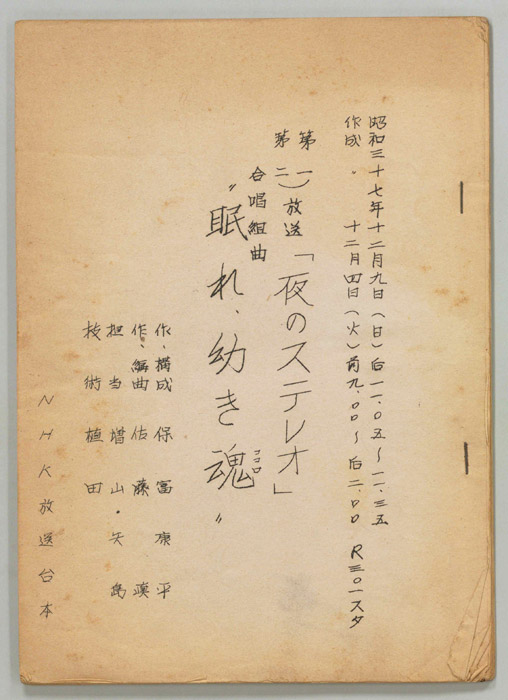 昭和三十七年十二月九日（日）后一一.〇五〜一一.三五
作成 〃 十二月四日（火）前九.〇〇〜后二.〇〇 R三〇一スタ
第一
第二）放送「夜のステレオ」
合唱組曲
〝眠れ、幼き魂〟
ココロ
作・構成 保富康平
作・編曲 佐藤眞
担当 増山・矢島
技術 植田
NHK放送台本